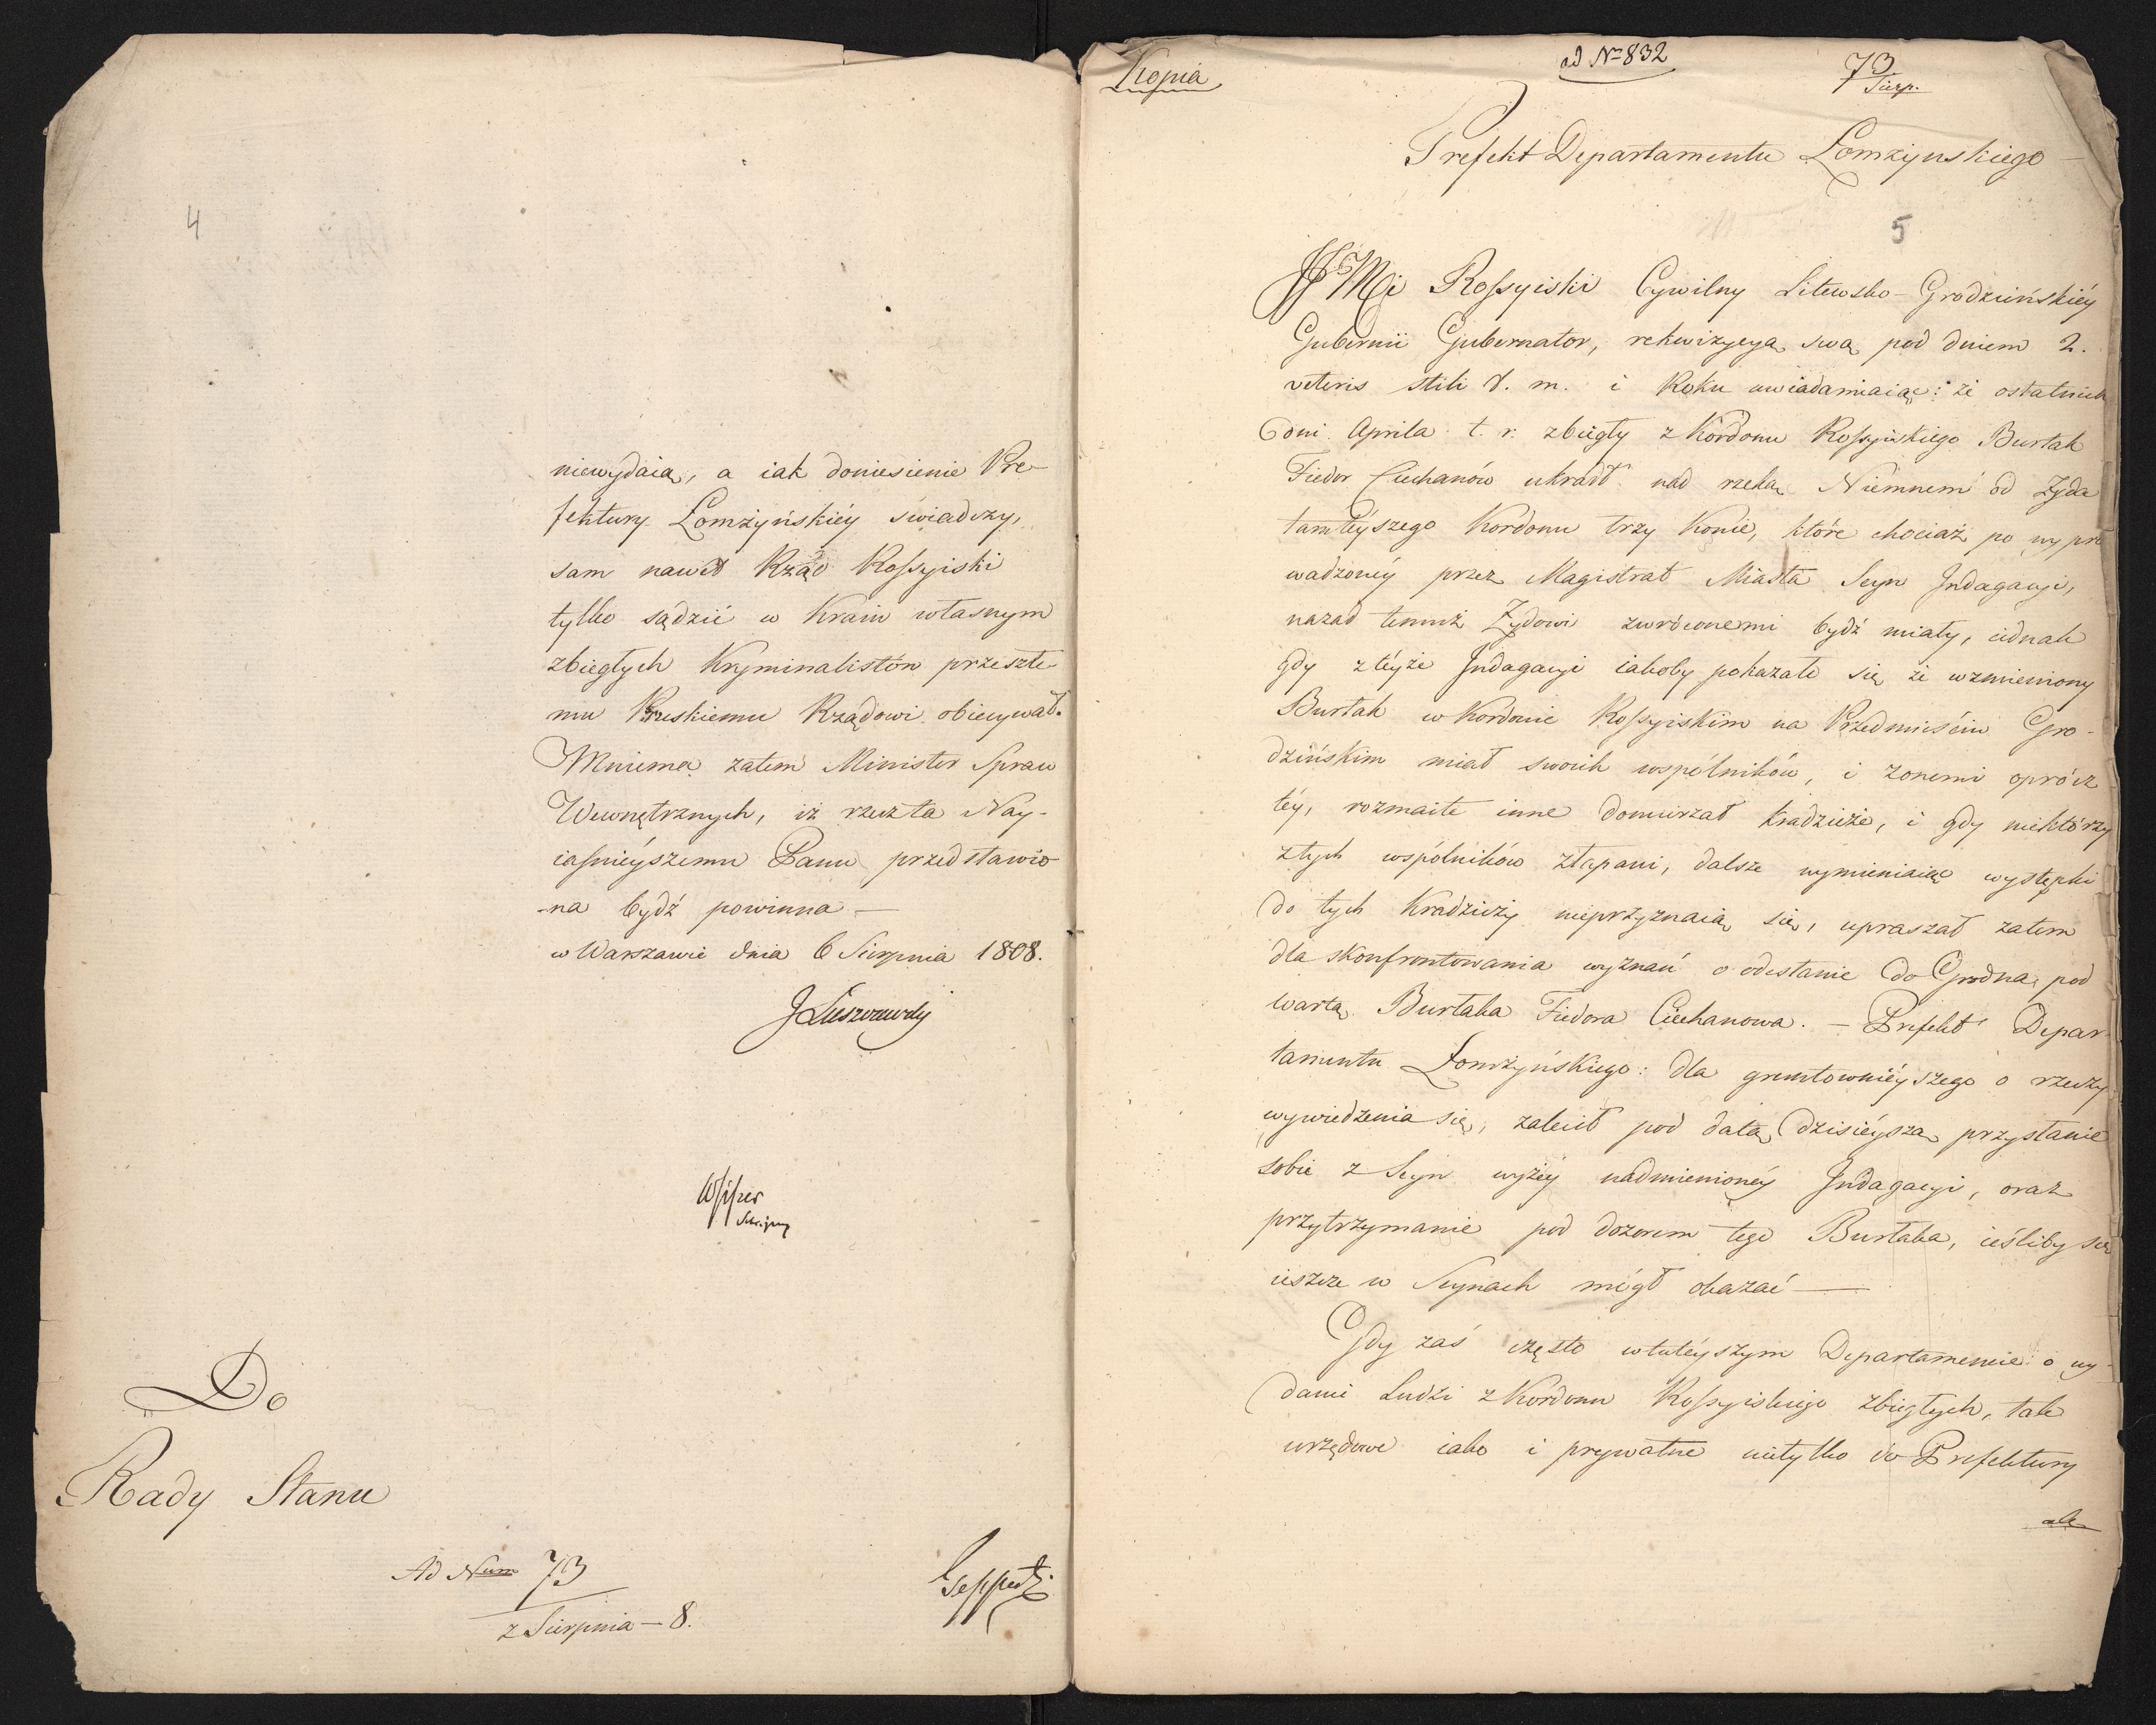 4
niewydaią, a iak doniesienie Pre-
fektury Łomżyńskiéy świadczy,
sam nawet Rząd Rossyiski
tylko sądzić w Kraiu własnym
zbiegłych Kryminalistów przeszłe-
mu Pruskiemu Rządowi obiecywał.
Mniema zatem Minister Spraw
Wewnętrznych, iż rzecz ta Nay-
iaśnieyszemu Panu przedstawio-
na bydź powinna —
w Warszawie dnia 6 Sierpnia 1808.
Do
Rady Stanu
Ad Num 73
z Sierpnia — 8.
Kopia
ad No 832
73
Sierp.
Prefekt Departamentu Łomżynskiego —
5
Rossyiski Cywilny Litewsko-Grodzieńskiéy
Gubernii Gubernator, rekwizycyą swą pod dniem 2.
veteris stili t. m. i Roku uwiadamiaiąc: że ostatnich
dni Aprila t. r. zbiegły z Kordonu Rossyiskiego Burłak
Fiedor Ciechanów ukradł nad rzeką Niemnem od Żyda
tamteyszego Kordonu trzy Konie, które chociaż po wypro
wadzoney przez Magistrat Miasta Seyn Indagacyi,
nazad temuż Żydowi zwróconemi bydź miały, iednak
gdy z téyże Indagacyi iakoby pokazało się że wzmieniony
Burłak w Kordonie Rossyiskim na Przedmieściu Gro-
dzińskim miał swoich wspólników, i z onemi oprócz
téy, rozmaite inne domierzał kradzieże, i gdy niektórzy
z tych wspólników złapani, dalsze wymieniaiąc występki
do tych Kradzieży nieprzyznaią się, upraszał zatem
dla skonfrontowania wyznań o odesłanie do Grodna pod
wartą Burłaka Fiedora Ciechanowa. — Prefekt Depar-
tamentu Łomżyńskiego: dla gruntownieyszego o rzeczy
wywiedzenia się, zalecił pod datą dzisieyszą przysłanie
sobie z Seyn wyżey nadmienioney Indagacyi, oraz
przytrzymanie pod dozorem tego Burłaka, ieśliby się
ieszcze w Seynach mógł okazać —
Gdy zaś często w tuteyszym Departamencie o wy-
danie Ludzi z Kordonu Rossyiskiego zbiegłych, tak
urzędowe iako i prywatne nietylko do Prefektury
ale